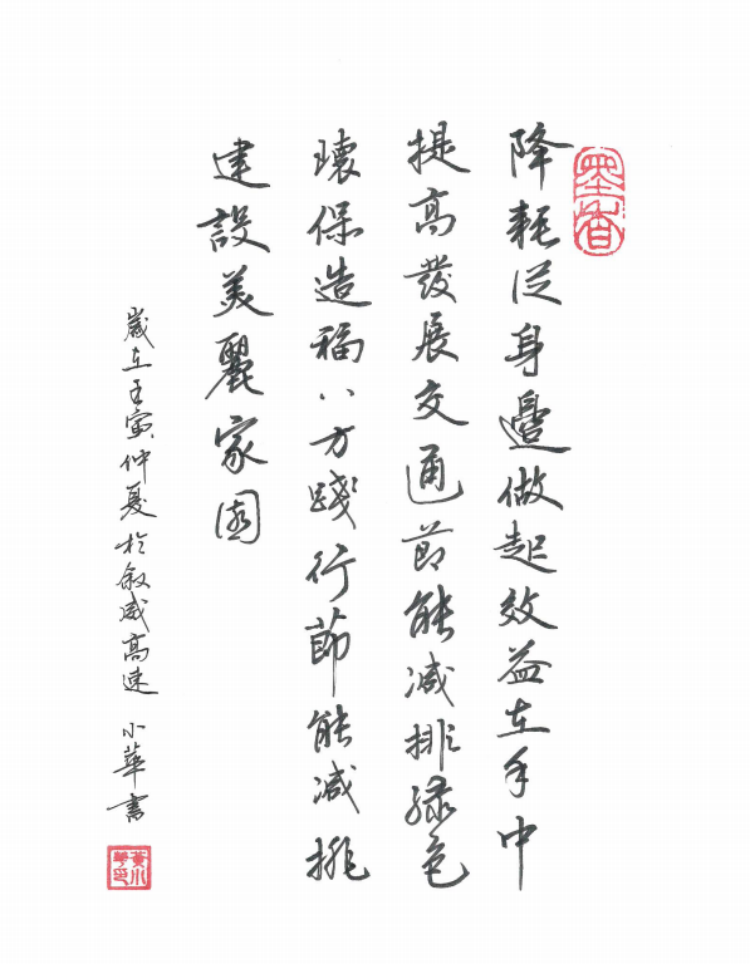 墨香
降耗從身邊做起效益在手中
提高發展交通節能減排綠色
環保造福八方踐行節能減排
建設美麗家園
歲在壬寅仲夏於敘威高速 小華書
黃小華印